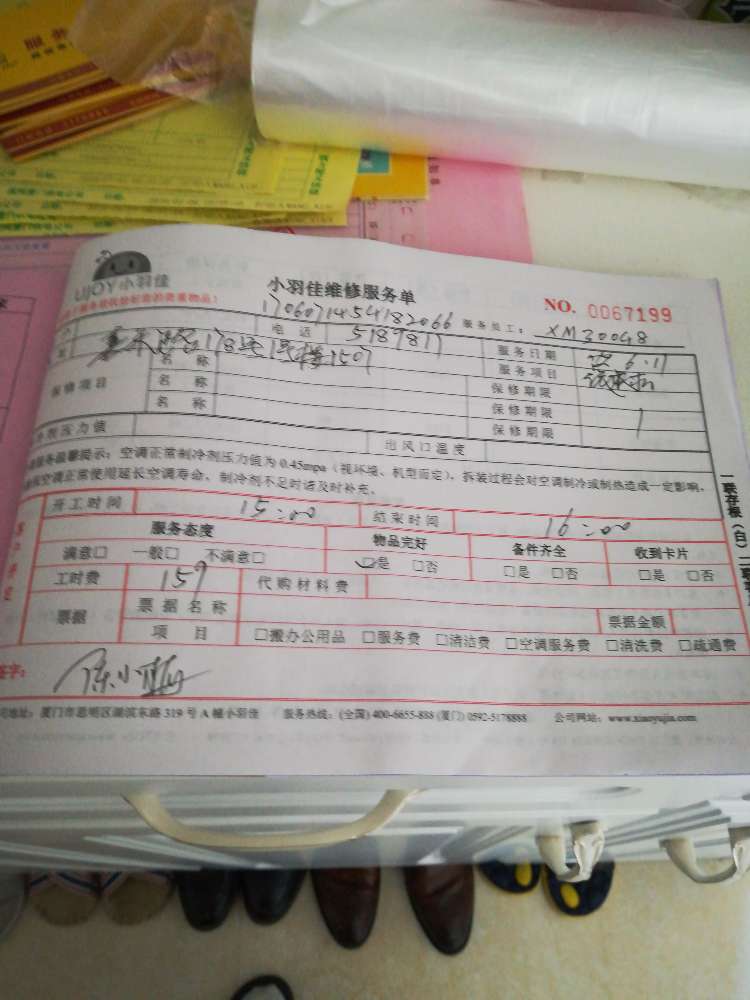 UJOY小羽佳
小羽佳维修服务单
NO. 0067199
1706071454182066
服务员工: XM30048
电话 5189817
服务日期 6.11
178号1号楼1507
服务项目
保修项目
名称
保修期限
名称
保修期限
名称
保修期限
剂压力值
出风口温度
服务温馨提示: 空调正常制冷剂压力值为 0.45mpa (视环境、机型而定), 拆装过程会对空调制冷或制热造成一定影响,
空调正常使用延长空调寿命, 制冷剂不足时请及时补充。
开工时间 15:00 结束时间 16:00
服务态度 物品完好 备件齐全 收到卡片
满意□ 一般□ 不满意□ □是 □否 □是 □否 □是 □否
工时费 159 代购材料费
票据 票据名称 票据金额
项目 □搬办公用品 □服务费 □清洁费 □空调服务费 □清洗费 □疏通费
签字: 陈小
司地址: 厦门市思明区湖滨东路 319 号 A 幢小羽佳 服务热线: (全国) 400-6655-888 (厦门) 0592-5178888 公司网站: www.xiaoyujia.com
一联存根(白)